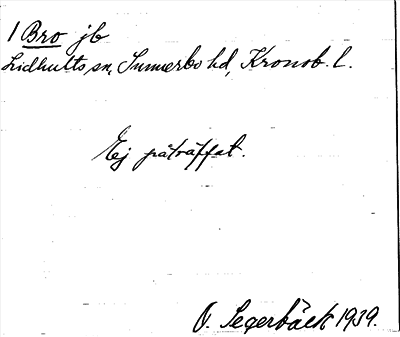 1 Bro jb
Lidhults sn, Sunnerbo hd, Kronob. l.
Ej påträffat.
O. Segerbäck 1939.